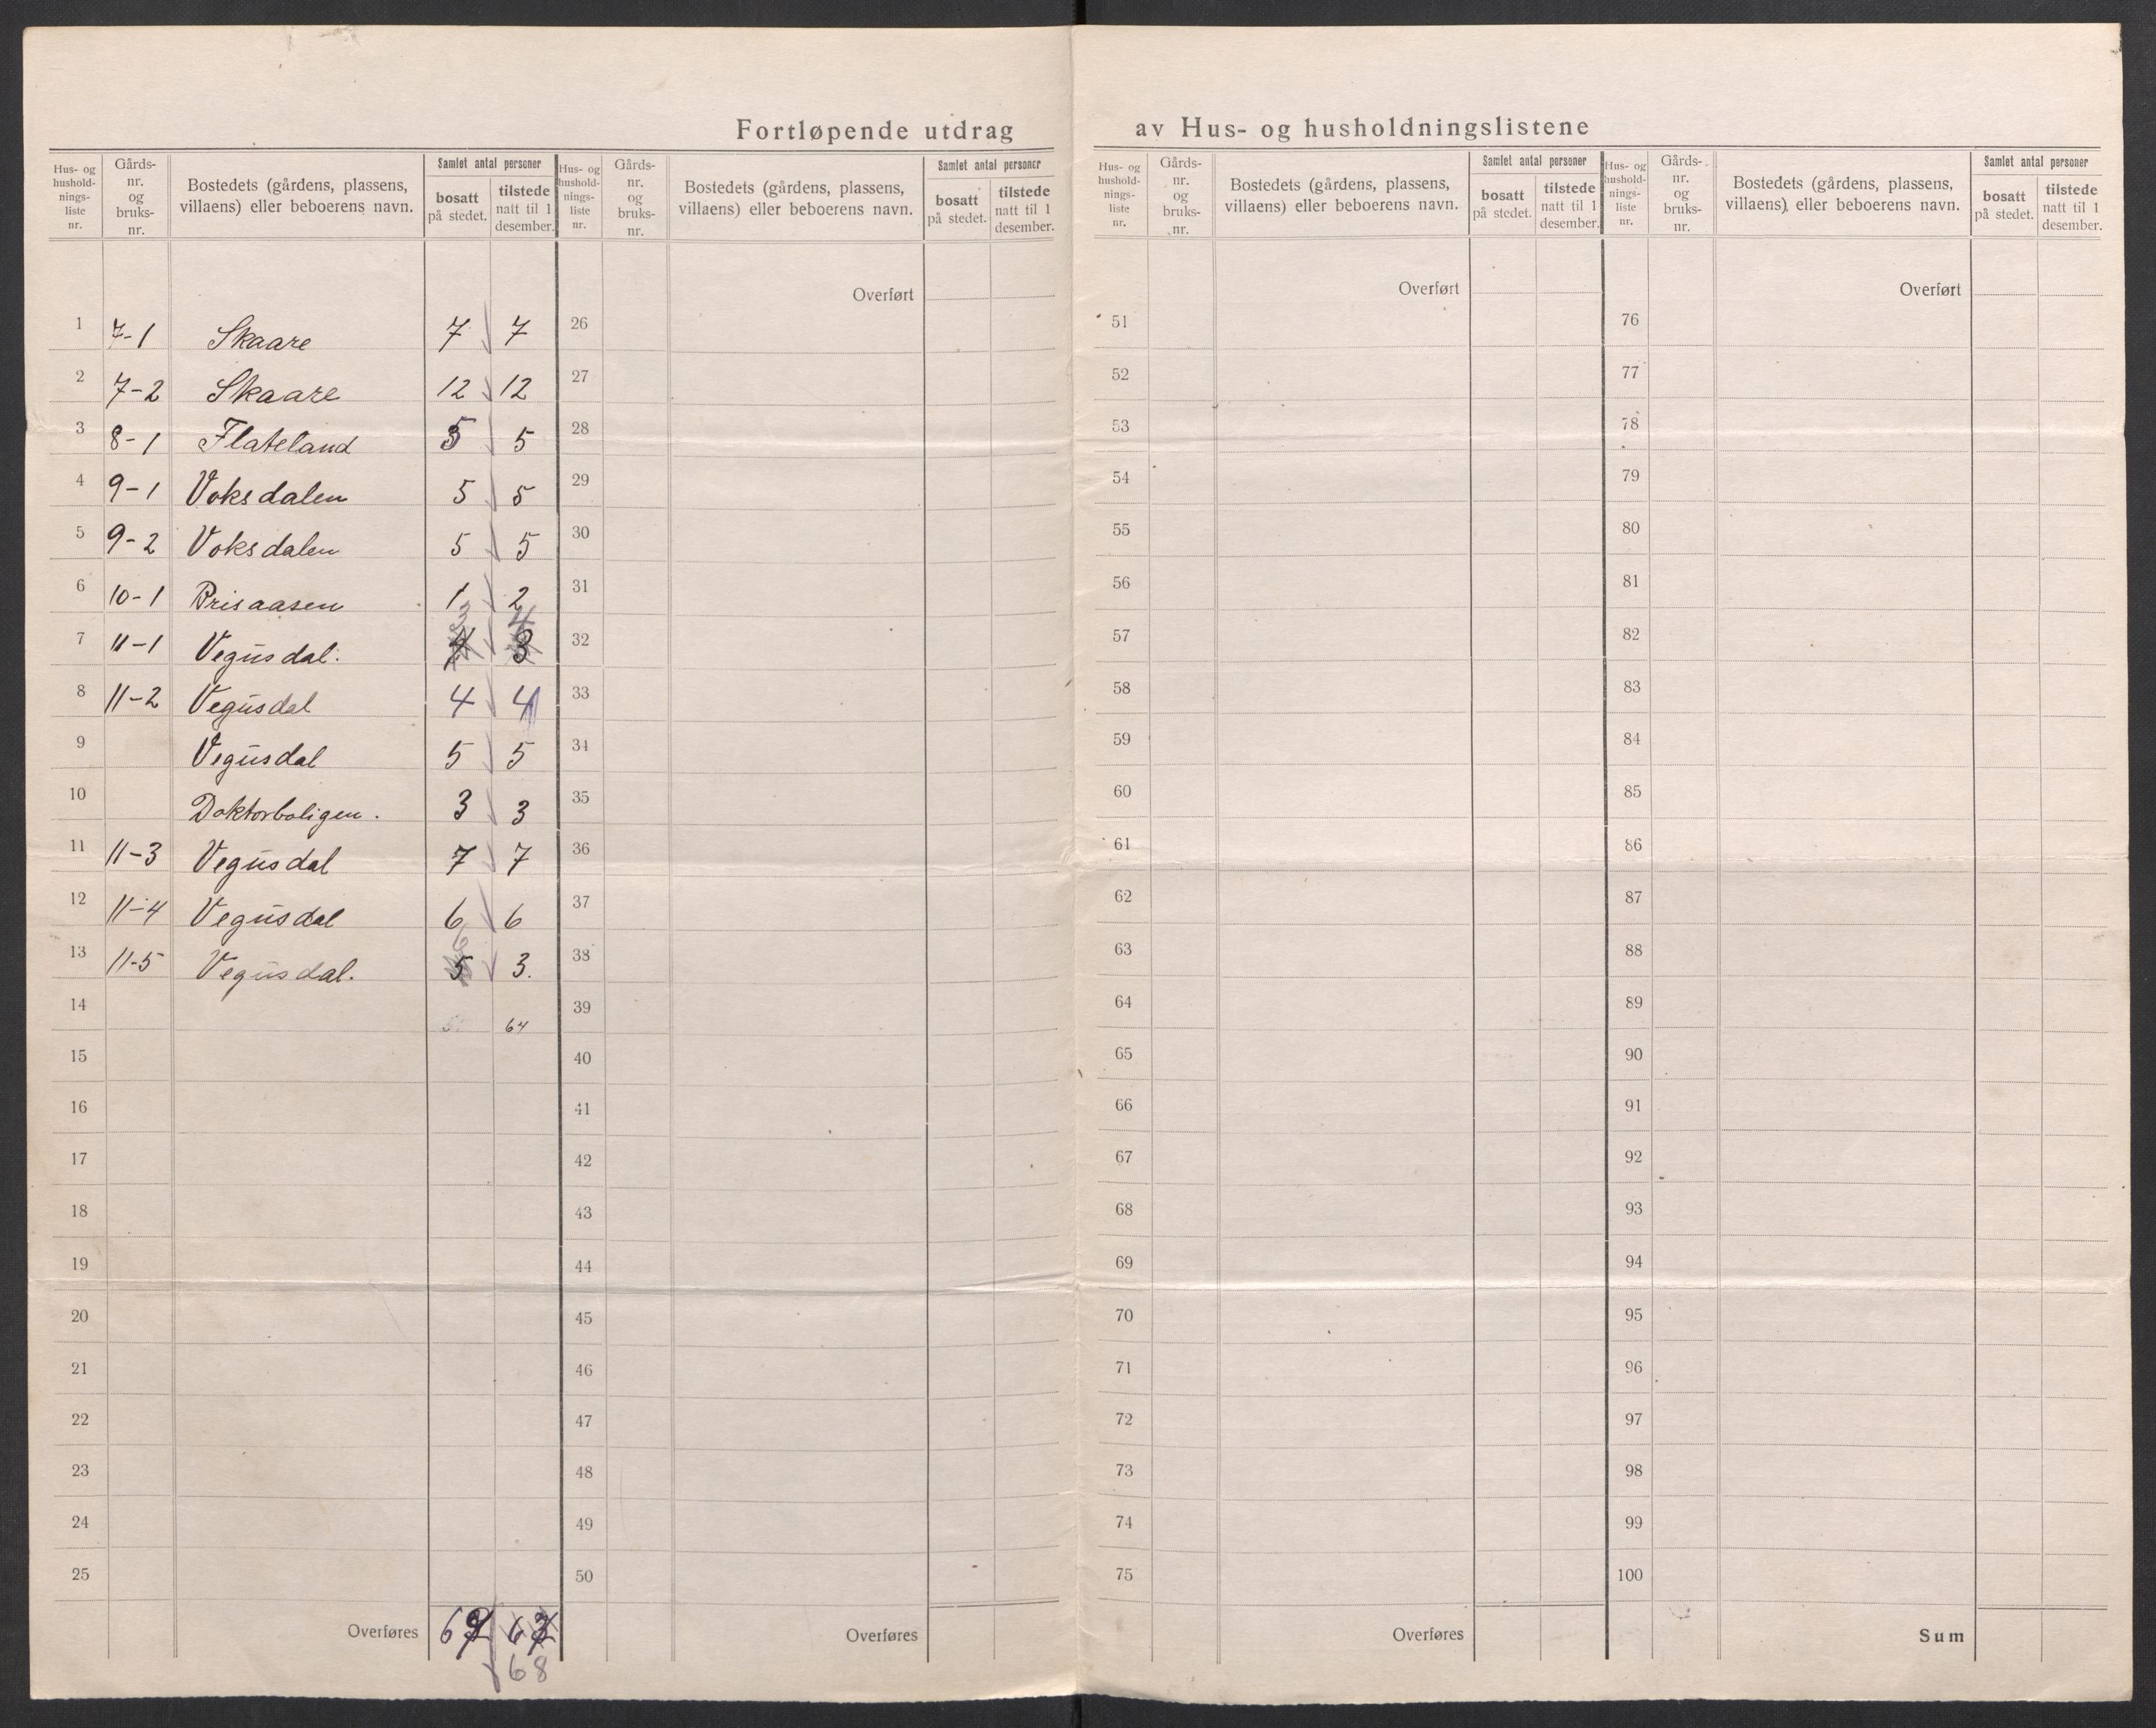 Fortløpende utdrag av Hus- og husholdningslistene
Hus- og hushold-nings-liste nr. Gårds-nr. og bruks-nr. Bostedets (gårdens, plassens, villaens) eller beboerens navn. Samlet antal personer bosatt på stedet. tilstede natt til 1 desember.
Hus- og hushold-nings-liste nr. Gårds-nr. og bruks-nr. Bostedets (gårdens, plassens, villaens) eller beboerens navn. Samlet antal personer bosatt på stedet. tilstede natt til 1 desember.
Hus- og hushold-nings-liste nr. Gårds-nr. og bruks-nr. Bostedets (gårdens, plassens, villaens) eller beboerens navn. Samlet antal personer bosatt på stedet. tilstede natt til 1 desember.
Hus- og hushold-nings-liste nr. Gårds-nr. og bruks-nr. Bostedets (gårdens, plassens, villaens) eller beboerens navn. Samlet antal personer bosatt på stedet. tilstede natt til 1 desember.
Overført Overført Overført
1 7-1 Skaare 7 7 26 51 76
2 7-2 Skaare 12 12 27 52 77
3 8-1 Flateland 5 5 28 53 78
4 9-1 Voksdalen 5 5 29 54 79
5 9-2 Voksdalen 5 5 30 55 80
6 10-1 Prisaasen 1 2 31 56 81
7 11-1 Vegusdal. 3 4 32 57 82
8 11-2 Vegusdal 4 4 33 58 83
9 Vegusdal 5 5 34 59 84
10 Doktorboligen. 3 3 35 60 85
11 11-3 Vegusdal 7 7 36 61 86
12 11-4 Vegusdal 6 6 37 62 87
13 11-5 Vegusdal. 5 3. 38 63 88
14 64 39 64 89
15 40 65 90
16 41 66 91
17 42 67 92
18 43 68 93
19 44 69 94
20 45 70 95
21 46 71 96
22 47 72 97
23 48 73 98
24 49 74 99
25 50 75 100
Overføres Overføres Overføres Sum
68